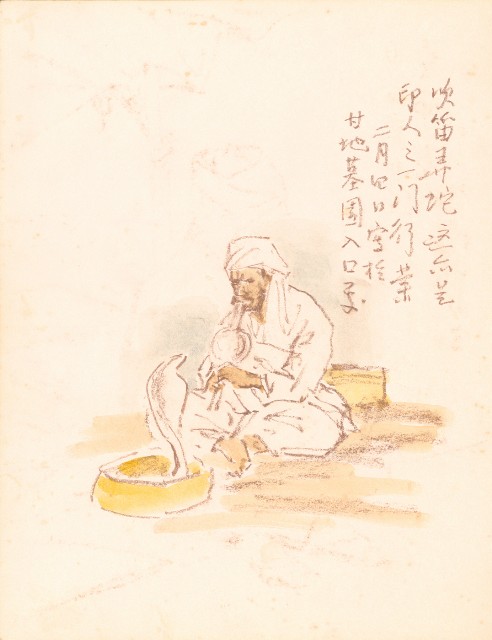 吹笛弄蛇这亦是
印人之一门行业
二月四日写於
甘地墓园入口处